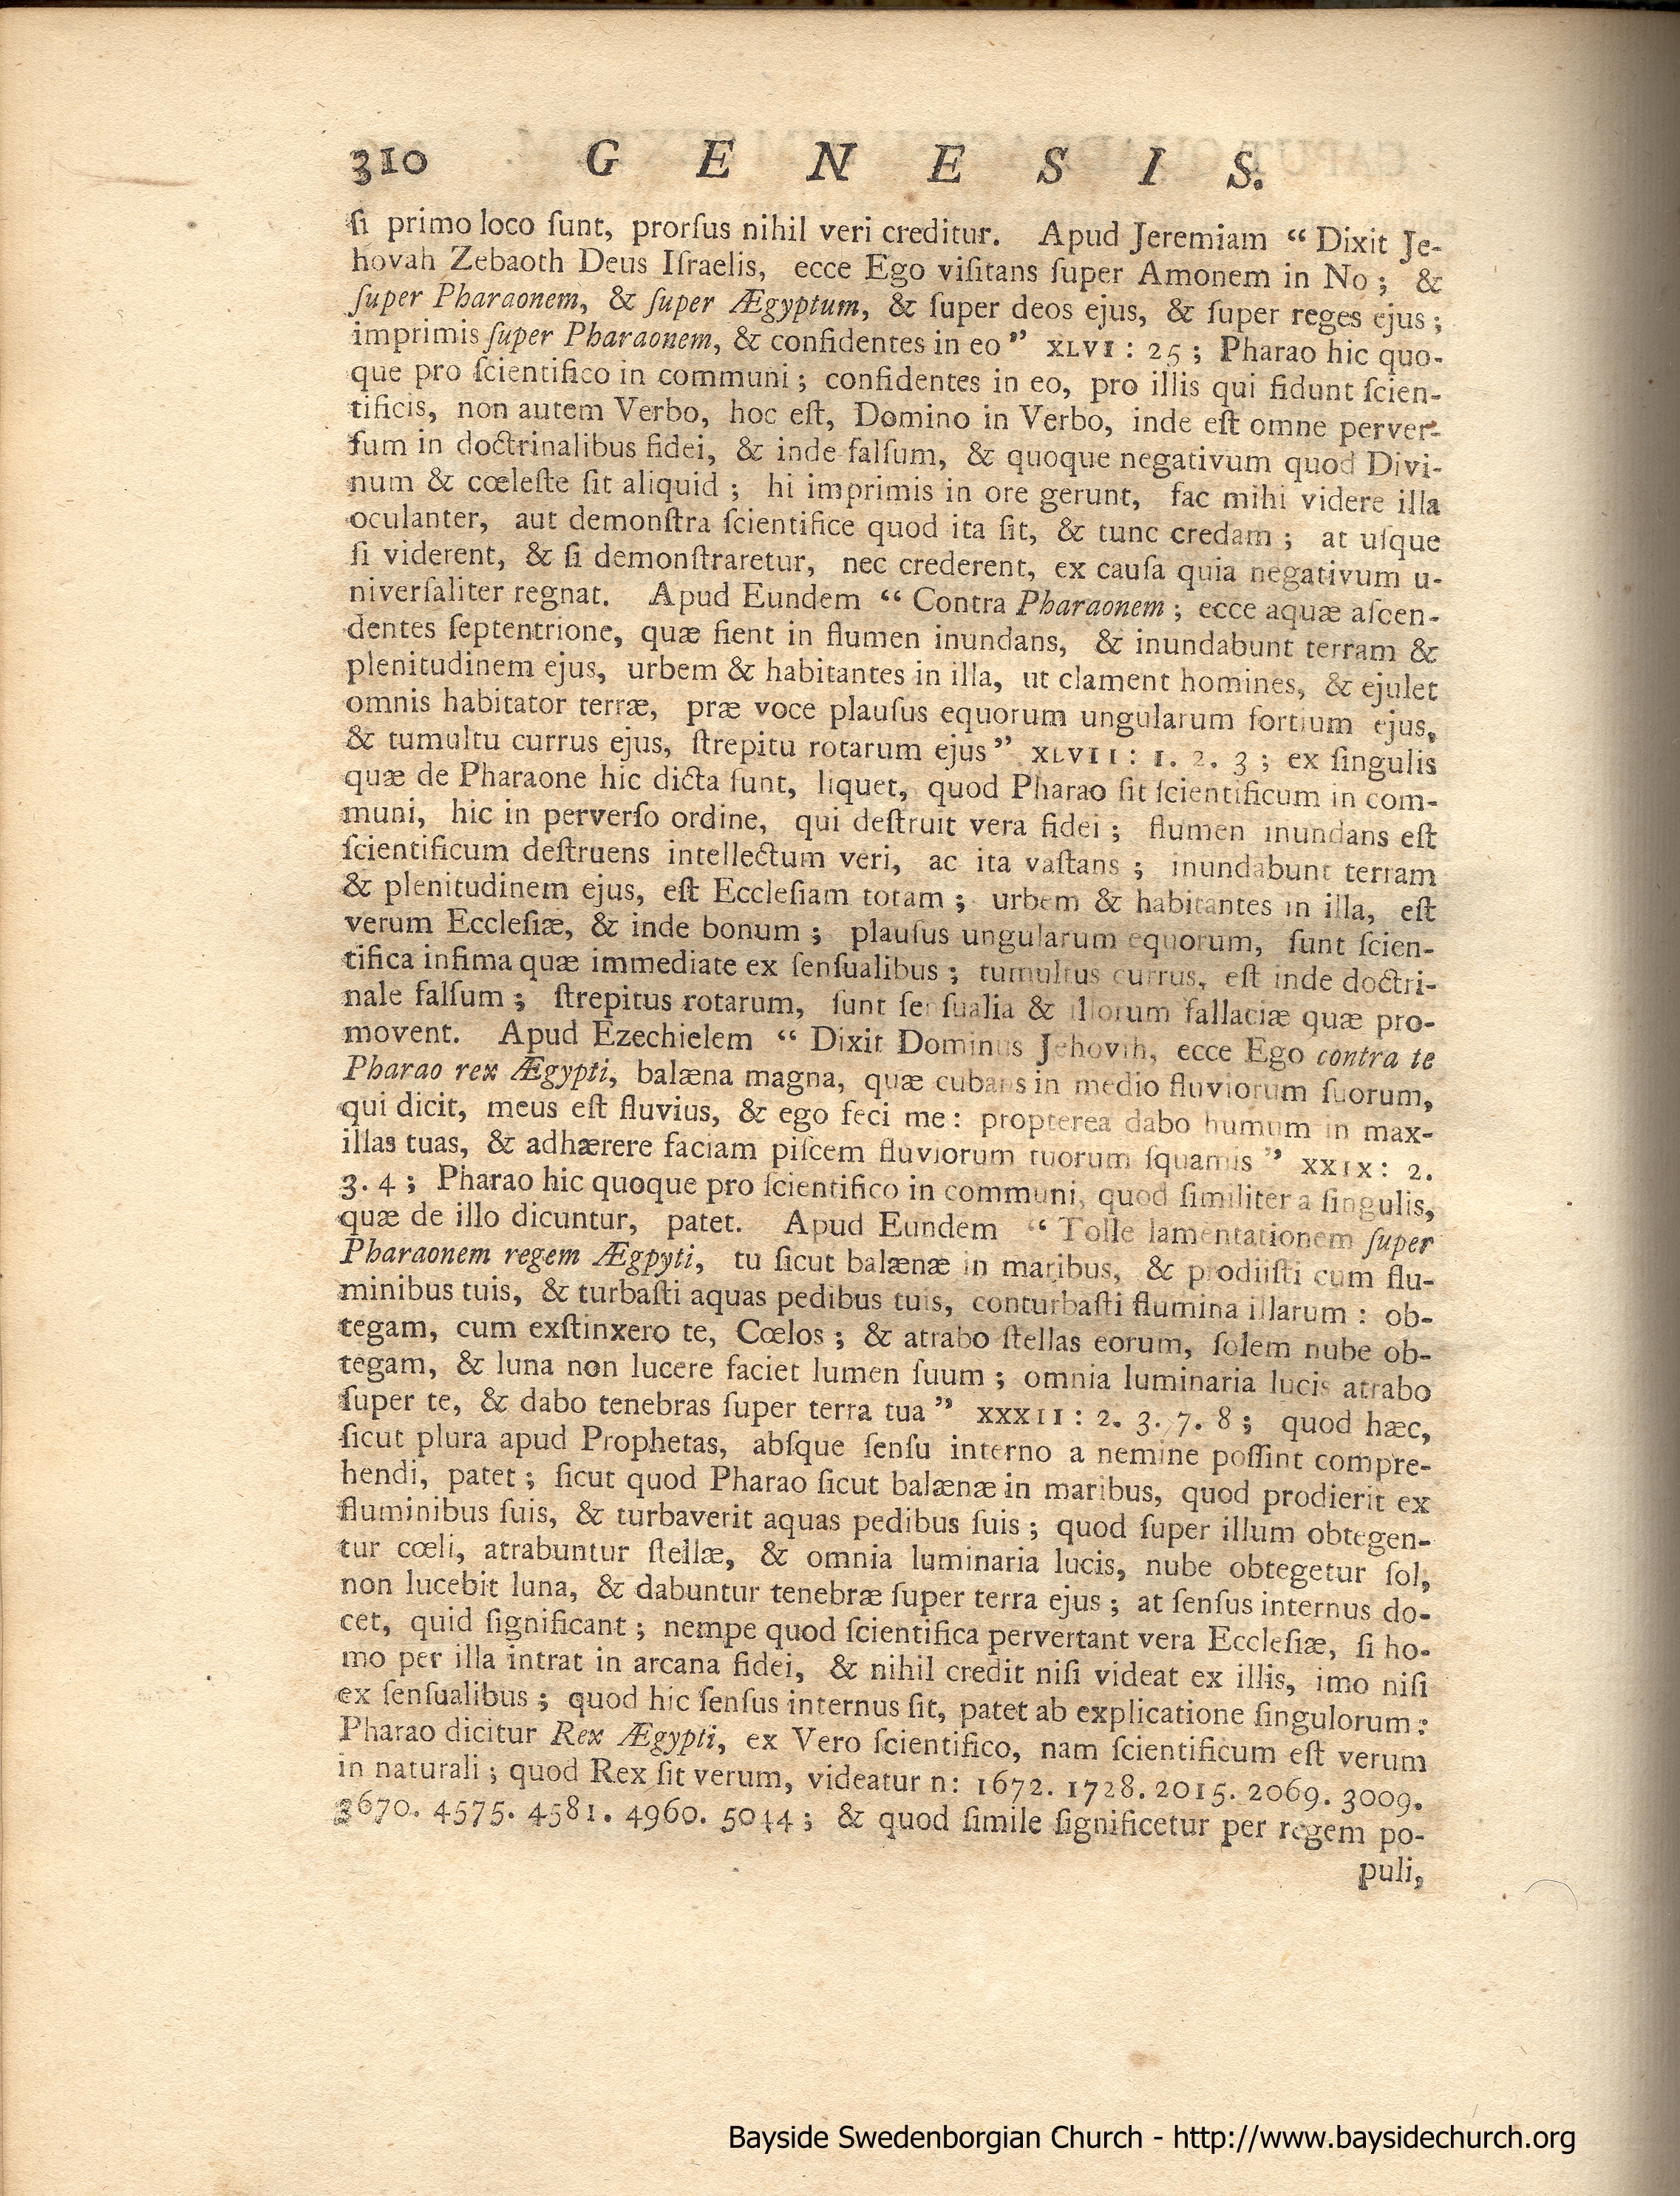 310 G E N E S I S.
ſi primo loco ſunt, prorſus nihil veri creditur. Apud Jeremiam “ Dixit Je-
hovah Zebaoth Deus Iſraelis, ecce Ego viſitans ſuper Amonem in No ; &
ſuper Pharaonem, & ſuper Ægyptum, & ſuper deos ejus, & ſuper reges ejus ;
imprimis ſuper Pharaonem, & confidentes in eo ” XLVI : 25 ; Pharao hic quo-
que pro ſcientifico in communi ; confidentes in eo, pro illis qui fidunt ſcien-
tificis, non autem Verbo, hoc eſt, Domino in Verbo, inde eſt omne perver-
ſum in doctrinalibus fidei, & inde falſum, & quoque negativum quod Divi-
num & cœleſte ſit aliquid ; hi imprimis in ore gerunt, fac mihi videre illa
oculanter, aut demonſtra ſcientifice quod ita ſit, & tunc credam ; at uſque
ſi viderent, & ſi demonſtraretur, nec crederent, ex cauſa quia negativum u-
niverſaliter regnat. Apud Eundem “ Contra Pharaonem ; ecce aquæ aſcen-
dentes ſeptentrione, quæ fient in flumen inundans, & inundabunt terram &
plenitudinem ejus, urbem & habitantes in illa, ut clament homines, & ejulet
omnis habitator terræ, præ voce plauſus equorum ungularum fortium ejus,
& tumultu currus ejus, ſtrepitu rotarum ejus ” XLVII : 1. 2. 3 ; ex ſingulis
quæ de Pharaone hic dicta ſunt, liquet, quod Pharao ſit ſcientificum in com-
muni, hic in perverſo ordine, qui deſtruit vera fidei ; flumen inundans eſt
ſcientificum deſtruens intellectum veri, ac ita vaſtans ; inundabunt terram
& plenitudinem ejus, eſt Eccleſiam totam ; urbem & habitantes in illa, eſt
verum Eccleſiæ, & inde bonum ; plauſus ungularum equorum, ſunt ſcien-
tifica infima quæ immediate ex ſenſualibus ; tumultus currus, eſt inde doctri-
nale falſum ; ſtrepitus rotarum, ſunt ſenſualia & illorum fallaciæ quæ pro-
movent. Apud Ezechielem “ Dixit Dominus Jehovih, ecce Ego contra te
Pharao rex Ægypti, balæna magna, quæ cubans in medio fluviorum ſuorum,
qui dicit, meus eſt fluvius, & ego feci me : propterea dabo humum in max-
illas tuas, & adhærere faciam piſcem fluviorum tuorum ſquamis ” XXIX : 2.
3. 4 ; Pharao hic quoque pro ſcientifico in communi, quod ſimiliter a ſingulis,
quæ de illo dicuntur, patet. Apud Eundem “ Tolle lamentationem ſuper
Pharaonem regem Ægpyti, tu ſicut balænæ in maribus, & prodiiſti cum flu-
minibus tuis, & turbaſti aquas pedibus tuis, conturbaſti flumina illarum : ob-
tegam, cum exſtinxero te, Cœlos ; & atrabo ſtellas eorum, ſolem nube ob-
tegam, & luna non lucere faciet lumen ſuum ; omnia luminaria lucis atrabo
ſuper te, & dabo tenebras ſuper terra tua ” XXXII : 2. 3. 7. 8 ; quod hæc,
ſicut plura apud Prophetas, abſque ſenſu interno a nemine poſſint compre-
hendi, patet ; ſicut quod Pharao ſicut balænæ in maribus, quod prodierit ex
fluminibus ſuis, & turbaverit aquas pedibus ſuis ; quod ſuper illum obtegen-
tur cœli, atrabuntur ſtellæ, & omnia luminaria lucis, nube obtegetur ſol,
non lucebit luna, & dabuntur tenebræ ſuper terra ejus ; at ſenſus internus do-
cet, quid ſignificant ; nempe quod ſcientifica pervertant vera Eccleſiæ, ſi ho-
mo per illa intrat in arcana fidei, & nihil credit niſi videat ex illis, imo niſi
ex ſenſualibus ; quod hic ſenſus internus ſit, patet ab explicatione ſingulorum :
Pharao dicitur Rex Ægypti, ex Vero ſcientifico, nam ſcientificum eſt verum
in naturali ; quod Rex ſit verum, videatur n: 1672. 1728. 2015. 2069. 3009.
3670. 4575. 4581. 4960. 5044 ; & quod ſimile ſignificetur per regem po-
puli,
Bayside Swedenborgian Church - http://www.baysidechurch.org